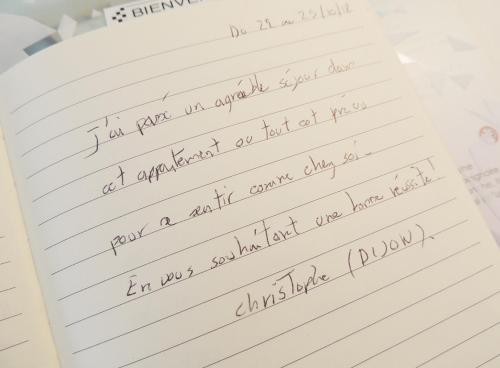 BIENVE
Du 24 au 25/10/18
J'ai passé un agréable séjour dans
cet appartement où tout est prévu
pour se sentir comme chez soi.
En vous souhaitant une bonne réussite!
Christophe (DIJON).